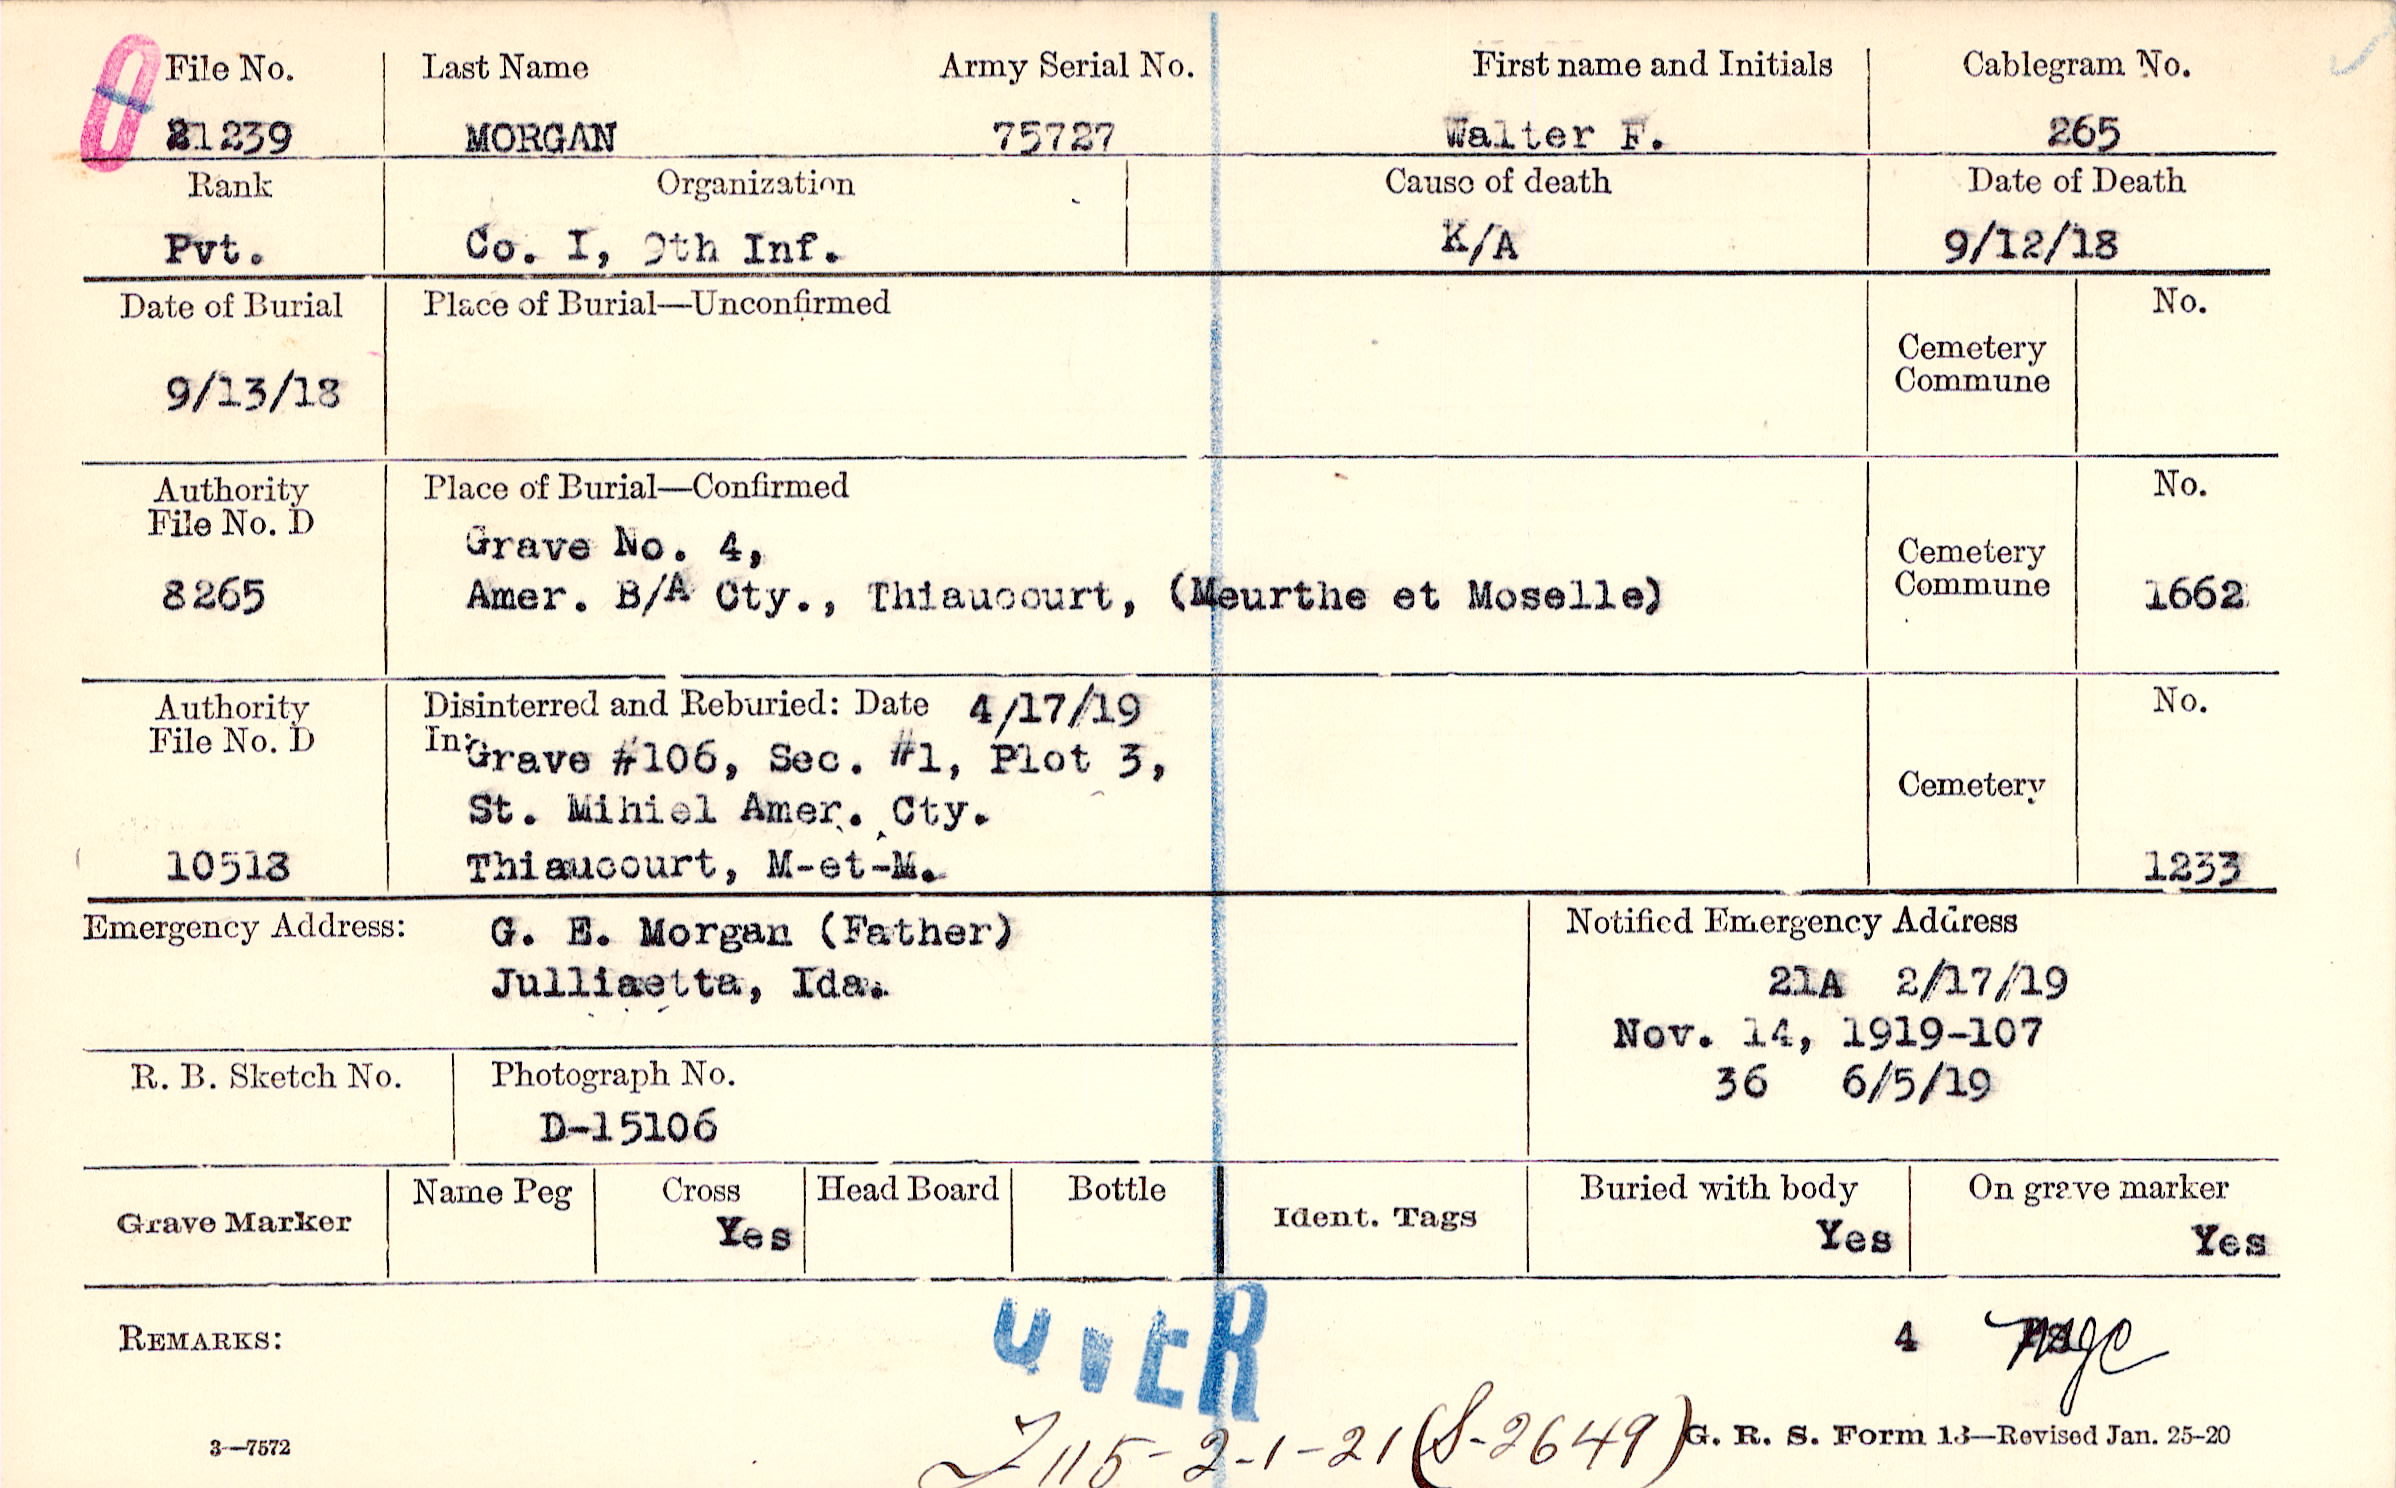 File No. Last Name Army Serial No. First name and Initials Cablegram No.
21239 MORGAN 75727 Walter F. 265
Rank Organization Cause of death Date of Death
Pvt. Co. I, 9th Inf. K/A 9/12/18
Date of Burial Place of Burial—Unconfirmed No.
Cemetery
Commune
9/13/18
Authority Place of Burial—Confirmed No.
File No. D
Grave No. 4,
Cemetery
8265 Amer. B/A Cty., Thiaucourt, (Meurthe et Moselle) Commune 1662
Authority Disinterred and Reburied: Date 4/17/19 No.
File No. D In:
Grave #106, Sec. #1, Plot 3,
Cemetery
St. Mihiel Amer. Cty.
10518 Thiaucourt, M-et-M. 1233
Emergency Address: G. E. Morgan (Father) Notified Emergency Address
Julliaetta, Ida. 21A 2/17/19
Nov. 14, 1919-107
R. B. Sketch No. Photograph No. 36 6/5/19
D-15106
Grave Marker Name Peg Cross Head Board Bottle Ident. Tags Buried with body On grave marker
Yes Yes Yes
OVER
REMARKS: 4
115-2-1-21 (S-2649)
3—7572 G. R. S. Form 13—Revised Jan. 25-20